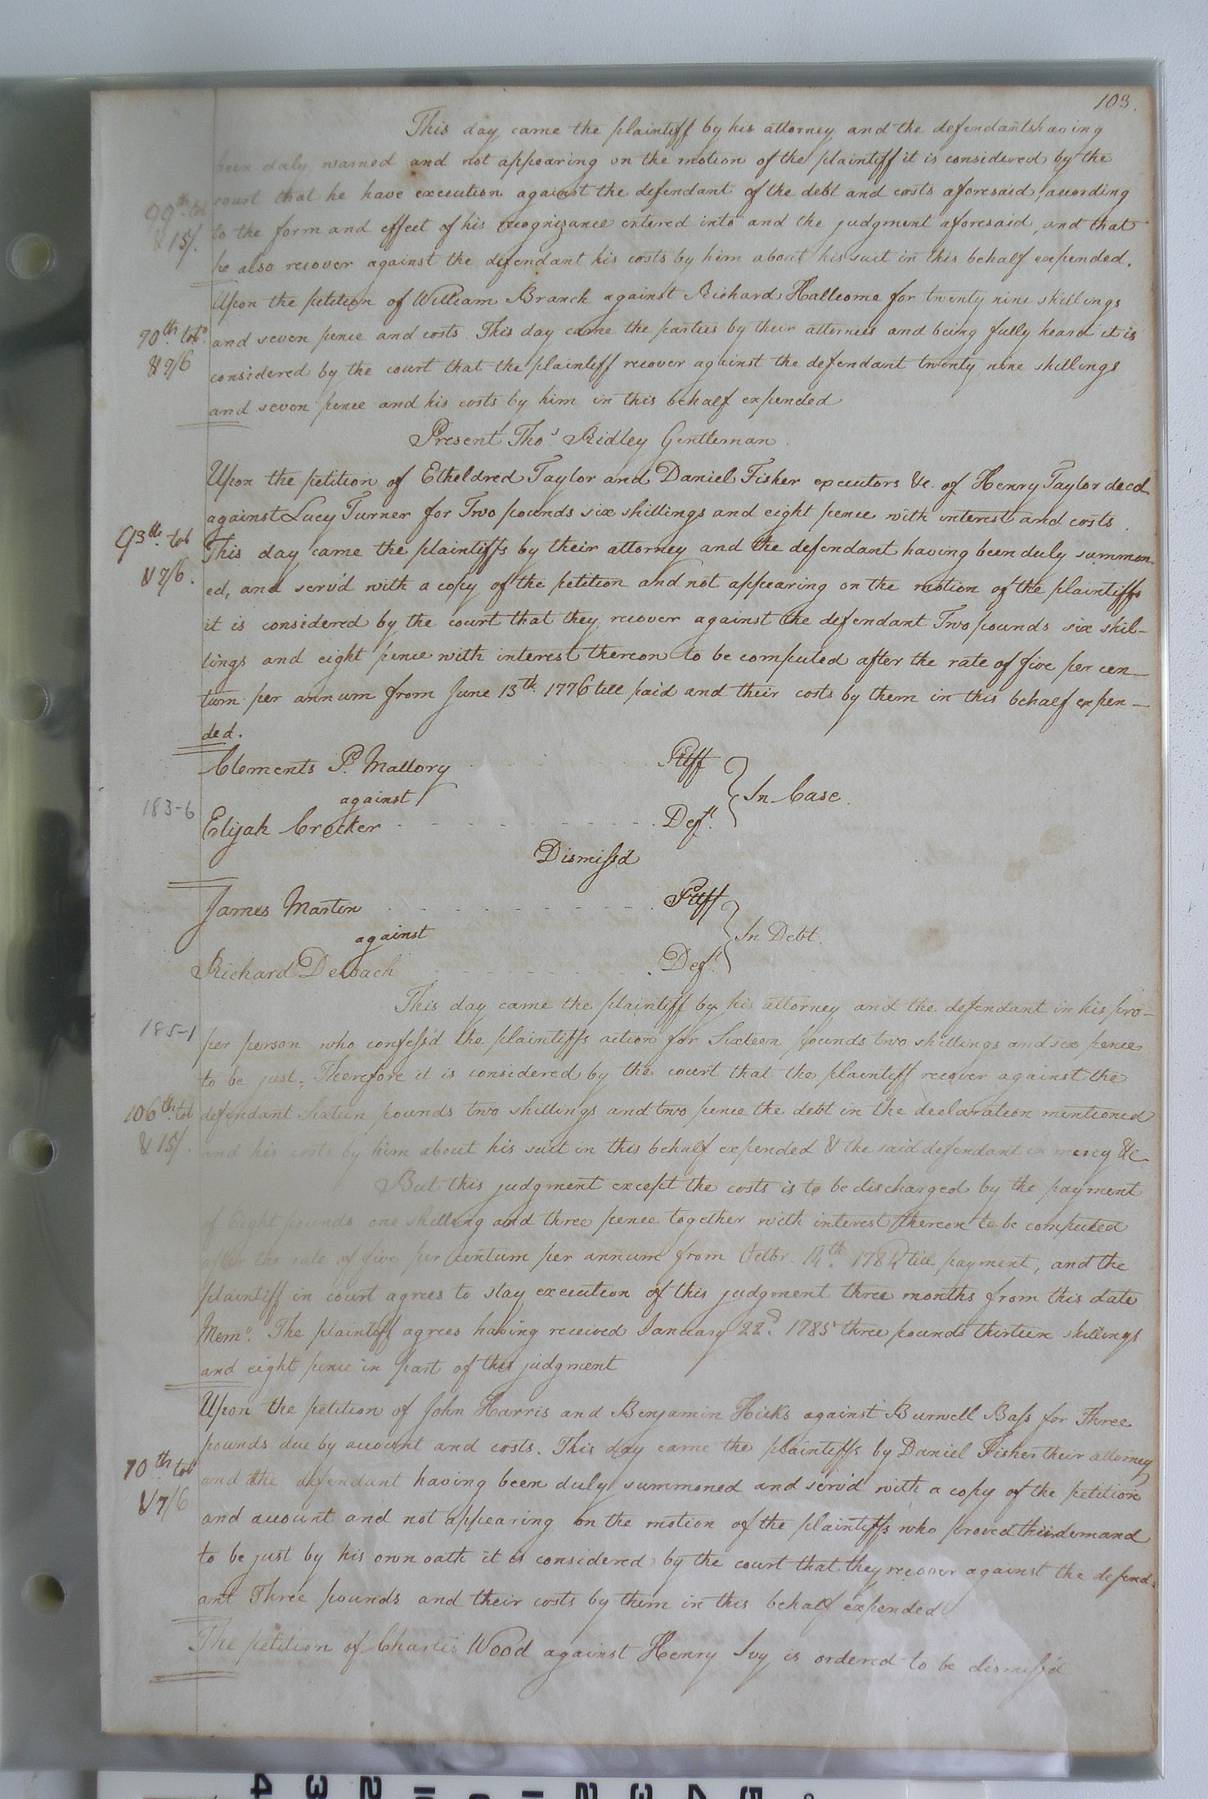 103.
This day came the plaintiff by his attorney and the defendants having
been duly warned and not appearing on the motion of the plaintiff it is considered by the
court that he have execution against the defendant of the debt and costs aforesaid, according
to the form and effect of his recognizance entered into and the judgment aforesaid, and that
he also recover against the defendant his costs by him about his suit in this behalf expended.
& 15/.
Upon the petition of William Branch against Richard Hallcome for twenty nine shillings
70th tobo
and seven pence and costs. This day came the parties by their attornies and being fully heard it is
& 7/6
considered by the court that the plaintiff recover against the defendant twenty nine shillings
and seven pence and his costs by him in this behalf expended
Present Thos Ridley Gentleman.
Upon the petition of Etheldred Taylor and Daniel Fisher executors &c. of Henry Taylor decd
against Lucy Turner for Two pounds six shillings and eight pence with interest and costs.
93th tob
This day came the plaintiffs by their attorney and the defendant having been duly summon-
& 7/6.
ed, and serv'd with a copy of the petition and not appearing on the motion of the plaintiffs
it is considered by the court that they recover against the defendant Two pounds six shil-
lings and eight pence with interest thereon to be computed after the rate of five per cen-
tum per annum from June 13th 1776 till paid and their costs by them in this behalf expen-
ded.
Clements P. Mallory Pltff
against In Case.
183-6
Elijah Crocker Deft.
Dismiss'd
James Martin Pltff
against In Debt.
Richard Deloach Deft
This day came the plaintiff by his attorney and the defendant in his pro-
185-1
per person who confess'd the plaintiffs action for Sixteen pounds two shillings and six pence
to be just, Therefore it is considered by the court that the plaintiff recover against the
106th tob
defendant Sixteen pounds two shillings and two pence the debt in the declaration mentioned
& 15/.
and his costs by him about his suit in this behalf expended & the said defendant in mercy &c
But this judgment except the costs is to be discharged by the payment
of Eight pounds one shilling and three pence together with interest thereon to be computed
after the rate of five per centum per annum from Octbr. 14th. 1784 till payment, and the
plaintiff in court agrees to stay execution of this judgment three months from this date
Memo. The plaintiff agrees having received January 22d. 1785 three pounds thirteen shillings
and eight pence in part of this judgment
Upon the petition of John Harris and Benjamin Hicks against Burwell Bass for Three
pounds due by account and costs. This day came the plaintiffs by Daniel Fisher their attorney
70th tob
and the defendant having been duly summoned and serv'd with a copy of the petition
& 7/6
and account and not appearing on the motion of the plaintiffs who proved their demand
to be just by his own oath it is considered by the court that they recover against the defend-
ant Three pounds and their costs by them in this behalf expended
The petition of Charles Wood against Henry Ivy is ordered to be dismiss'd